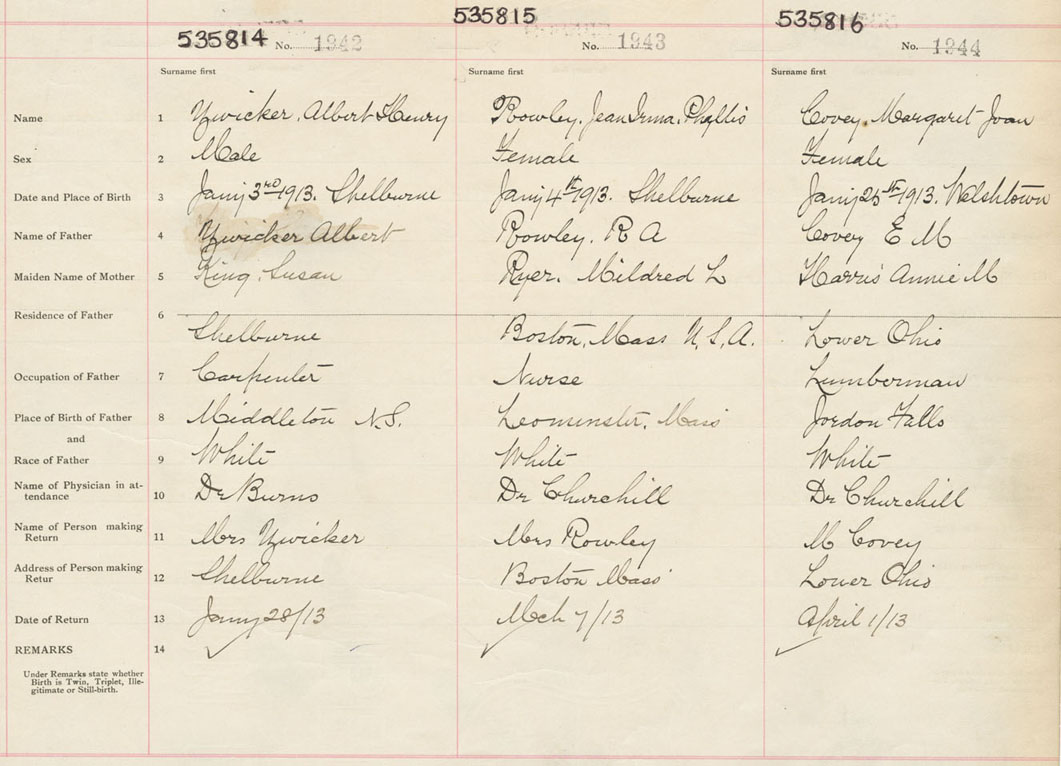 535814 No. 1942 535815 No. 1943 535816 No. 1944
Surname first Surname first Surname first
Name 1 Zwicker, Albert Henry Rowley, Jean Irma, Phyllis Covey, Margaret Joan
Sex 2 Male Female Female
Date and Place of Birth 3 Jany 3rd 1913. Shelburne Jany 4th 1913. Shelburne Jany 25th 1913. Welshtown
Name of Father 4 Zwicker Albert Rowley. R A Covey E M
Maiden Name of Mother 5 King, Susan Ryer. Mildred L Harris Annie M
Residence of Father 6
Shelburne Boston, Mass U.S.A. Lower Ohio
Occupation of Father 7 Carpenter Nurse Lumberman
Place of Birth of Father 8 Middleton N.S. Leominster, Mass Jordon Falls
and
Race of Father 9 White White White
Name of Physician in at-
tendance 10 Dr Burns Dr Churchill Dr Churchill
Name of Person making
Return 11 Mrs Zwicker Mrs Rowley M Covey
Address of Person making
Retur 12 Shelburne Boston Mass Lower Ohio
Date of Return 13 Jany 28/13 Mch 7/13 April 1/13
REMARKS 14
Under Remarks state whether
Birth is Twin, Triplet, Ille-
gitimate or Still-birth.